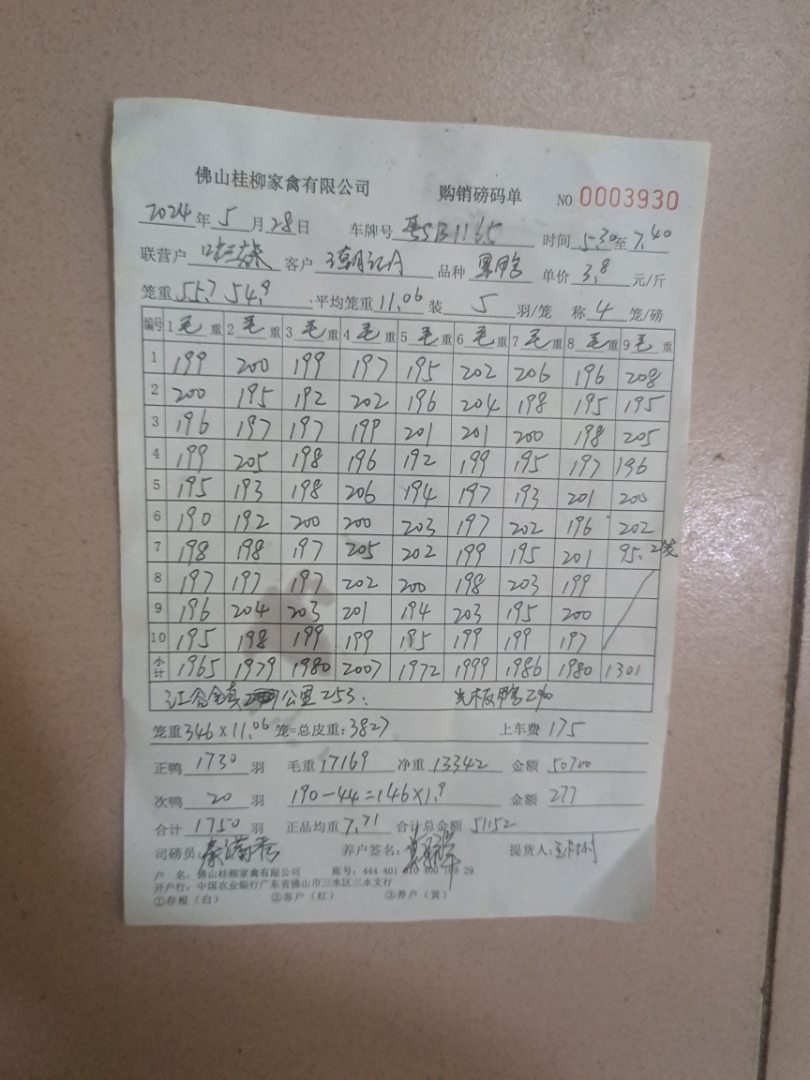 佛山桂柳家禽有限公司 购销磅码单 NO 0003930
2024年5月28日 车牌号 粤SB1165 时间 5-30至7.40
联营户 客户 品种 单价 3.8 元/斤
笼重 55.7 54.9 平均笼重 11.06 装 5 羽/笼 称 4 笼/磅
编号 1毛重 2毛重 3毛重 4毛重 5毛重 6毛重 7毛重 8毛重 9毛重
1 199 200 199 197 195 202 206 196 208
2 200 195 192 202 196 204 198 195 195
3 196 197 197 199 201 201 200 198 205
4 199 205 198 196 192 199 195 197 196
5 195 193 198 206 194 197 193 201 200
6 190 192 200 200 203 197 202 196 202
7 198 198 197 205 202 199 195 201 95.2笼
8 197 197 197 202 200 198 203 199
9 196 204 203 201 194 203 195 200
10 195 198 199 199 195 199 199 197
小计 1965 1979 1980 2007 1972 1999 1986 1980 1301
公里253. 光板鸭2%
笼重 346×11.06 笼=总皮重:3827 上车费 175
正鸭 1730 羽 毛重 17169 净重 13342 金额 50700
次鸭 20 羽 190-44=146×1.9 金额 277
合计 1750 羽 正品均重 7.71 合计总金额 51152
司磅员: 养户签名: 提货人:
户 名:佛山桂柳家禽有限公司 账号:444 401 010 400 109 29
开户行:中国农业银行广东省佛山市三水区三水支行
①存根(白) ②客户(红) ③养户(黄)